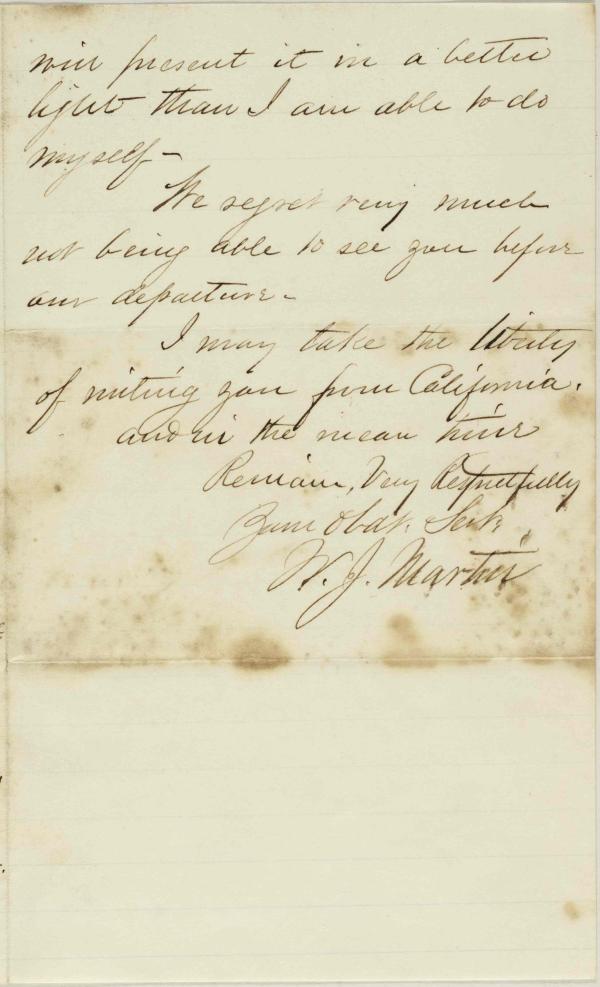 will present it in a better
light than I am able to do
myself—
We regret very much
not being able to see you before
our departure—
I may take the liberty
of writing you from California.
and in the mean time
Remain, Very Respectfully
Your Obdt. Servt.
W. J. Martin